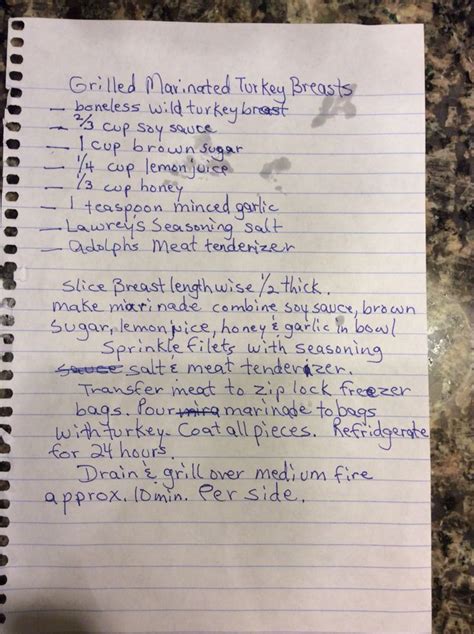 Grilled Marinated Turkey Breasts
— boneless wild turkey breast
— 2/3 cup soy sauce
— 1 cup brown sugar
— 1/4 cup lemon juice
— 1/3 cup honey
— 1 teaspoon minced garlic
— Lawrey's Seasoning salt
— Adolphs Meat tenderizer
Slice Breast lengthwise 1/2 thick.
make marinade combine soy sauce, brown
Sugar, lemon juice, honey & garlic in bowl
Sprinkle filets with seasoning
sauce salt & meat tenderizer.
Transfer meat to zip lock freezer
bags. Pour mira marinade to bags
with turkey. Coat all pieces. Refridgerate
for 24 hours.
Drain & grill over medium fire
approx. 10 min. Per side.